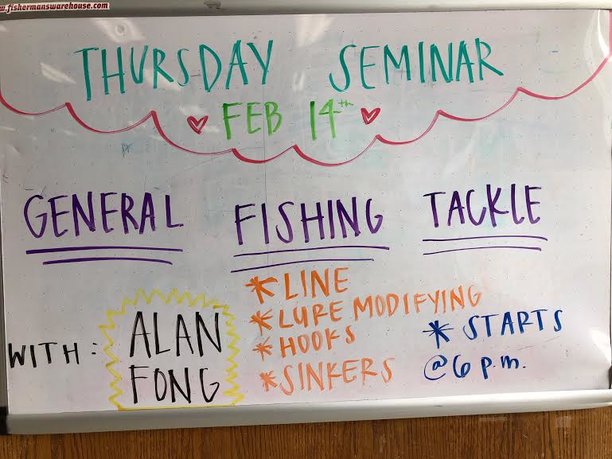 www.fishermanswarehouse.com
THURSDAY SEMINAR
FEB 14th
GENERAL FISHING TACKLE
WITH: ALAN FONG
* LINE
* LURE MODIFYING
* HOOKS
* SINKERS
* STARTS
@ 6 p.m.